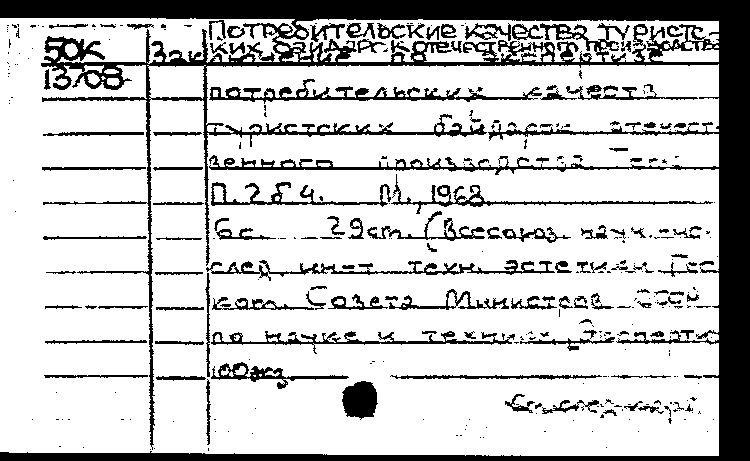 Потребительские качества туристс-
50К Зак ких байдарок отечественного производства
лючение по экспертизе
13708
потребительских качеств
туристских байдарок отечест-
венного производства. Тема
П. 2 б 4. М., 1968.
6с. 29 cm. (Всесоюз. науч.-ис-
след. ин-т техн. эстетики Гос
ком. Совета Министров СССР
по науке и технике. Экспертиз
100 экз.